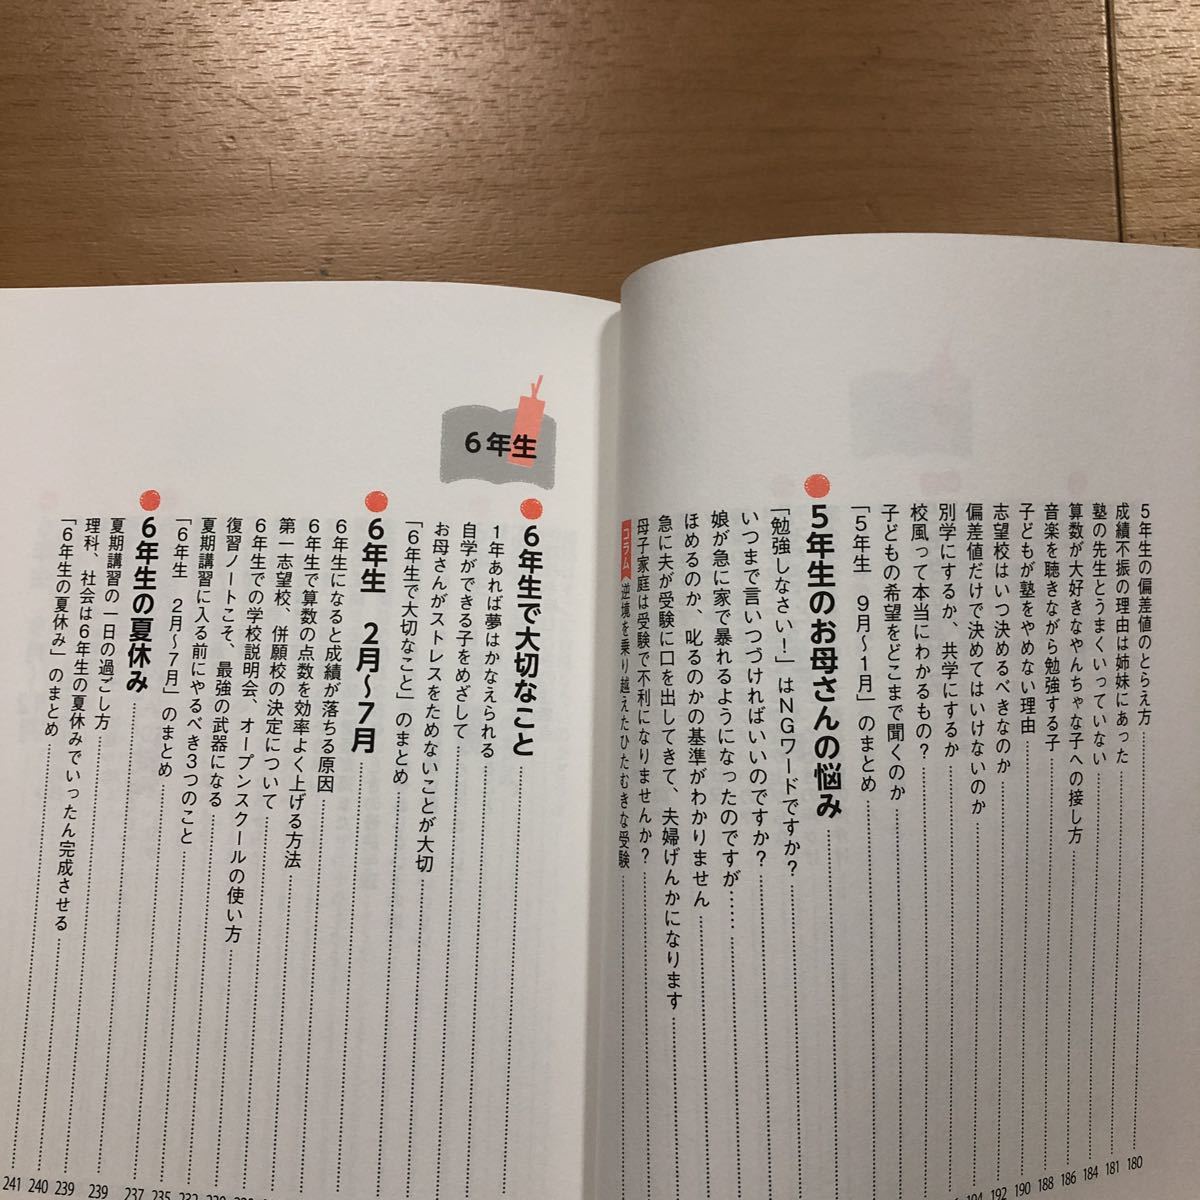 5年生の偏差値のとらえ方 180
成績不振の理由は姉妹にあった 181
塾の先生とうまくいっていない 184
算数が大好きなやんちゃな子への接し方 186
音楽を聴きながら勉強する子 188
子どもが塾をやめない理由 190
志望校はいつ決めるべきなのか 192
偏差値だけで決めてはいけないのか
別学にするか、共学にするか
校風って本当にわかるもの？
子どもの希望をどこまで聞くのか
「5年生　9月〜1月」のまとめ
5年生のお母さんの悩み
「勉強しなさい！」はNGワードですか？
いつまで言いつづければいいのですか？
娘が急に家で暴れるようになったのですが……
ほめるのか、叱るのかの基準がわかりません
急に夫が受験に口を出してきて、夫婦げんかになります
母子家庭は受験で不利になりませんか？
コラム 逆境を乗り越えたひたむきな受験
6年生
6年生で大切なこと
1年あれば夢はかなえられる
自学ができる子をめざして
お母さんがストレスをためないことが大切
「6年生で大切なこと」のまとめ
6年生　2月〜7月
6年生になると成績が落ちる原因
6年生で算数の点数を効率よく上げる方法
第一志望校、併願校の決定について
6年生での学校説明会、オープンスクールの使い方
復習ノートこそ、最強の武器になる
夏期講習に入る前にやるべき3つのこと
「6年生　2月〜7月」のまとめ 235
6年生の夏休み 237
夏期講習の一日の過ごし方 239
理科、社会は6年生の夏休みでいったん完成させる 239
「6年生の夏休み」のまとめ 240
241